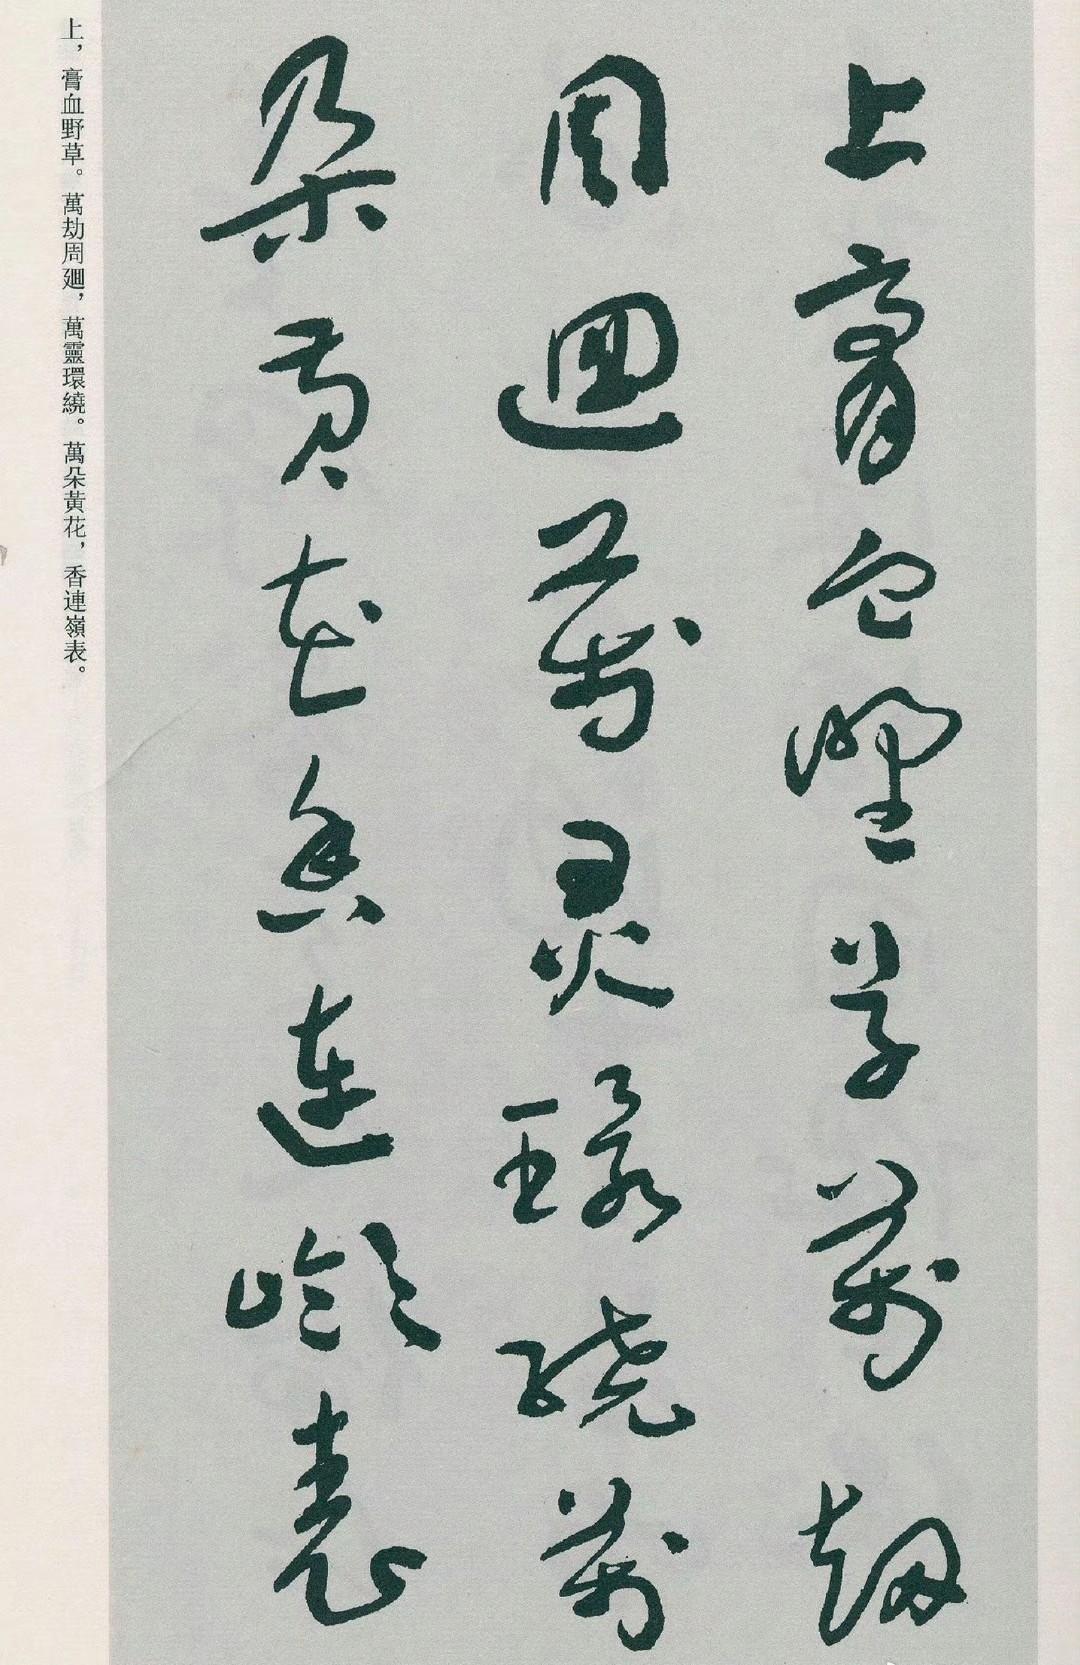 上膏血野草萬劫
周迴萬灵環繞萬
朵黃花香連嶺表
上，膏血野草。萬劫周廻，萬靈環繞。萬朵黃花，香連嶺表。